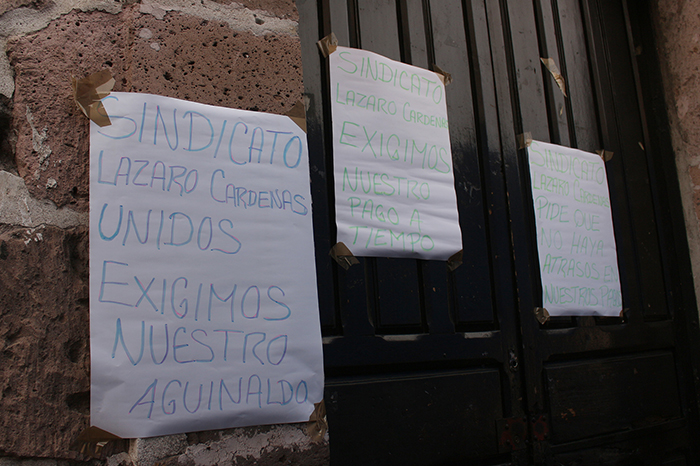 SINDICATO
LAZARO CARDENAS
UNIDOS
EXIGIMOS
NUESTRO
AGUINALDO
SINDICATO
LAZARO CARDENAS
EXIGIMOS
NUESTRO
PAGO A
TIEMPO
SINDICATO
LAZARO CARDENAS
PIDE QUE
NO HAYA
ATRASOS EN
NUESTROS